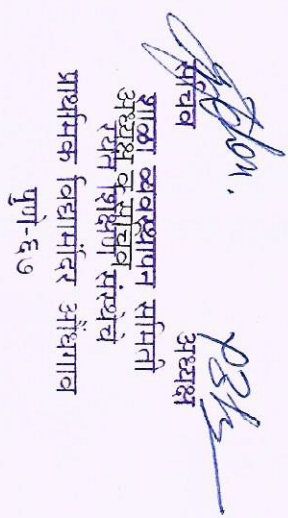 सचिव अध्यक्ष
शाळा व्यवस्थापन समिती
अध्यक्ष व सचिव
रयत शिक्षण संस्थेचे
प्राथमिक विद्यामंदिर औंधगाव
पुणे-६७